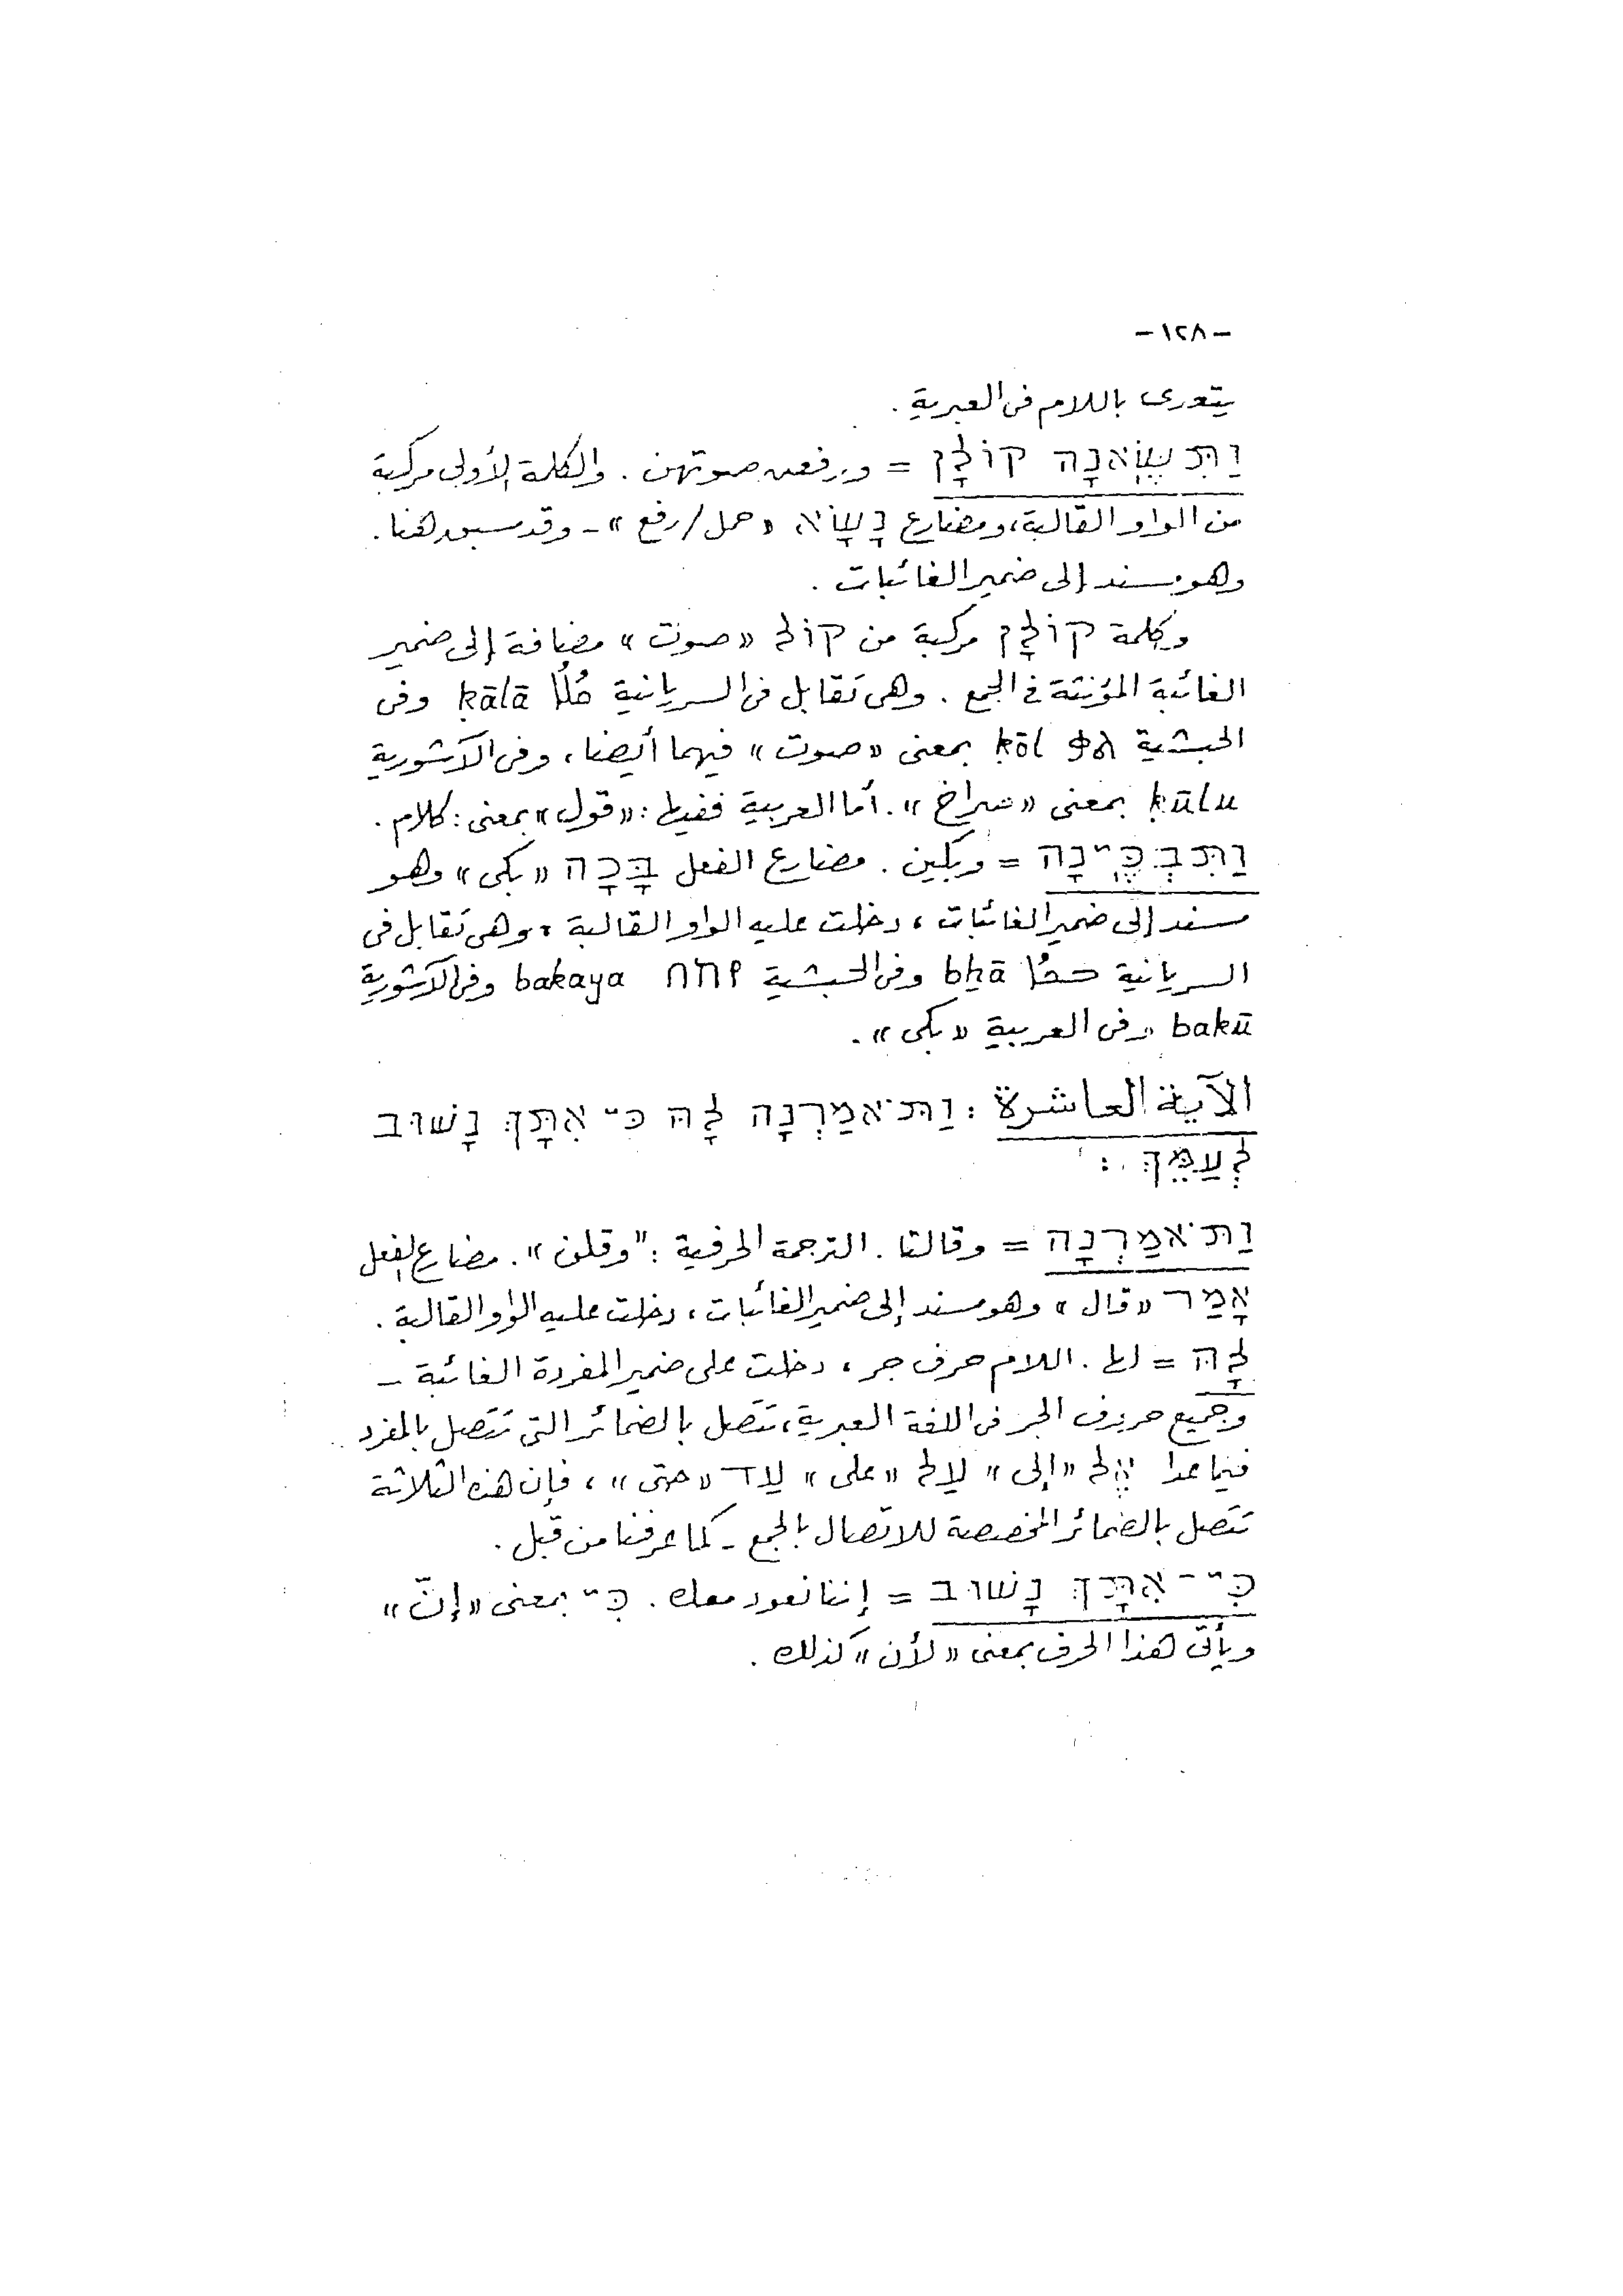 -١٢٨-
يتعدى باللام فى العبرية .
וַתִּשֶּׂאנָה קוֹלָן = ورفعن صوتهن . والكلمة الأولى مركبة
من الواو القالبة، ومضارع נָשָׂא «حمل/رفع» - وقد سبق هنا .
وهو مسند إلى ضمير الغائبات .
وكلمة קוֹלָן مركبة من קוֹל «صوت» مضافة إلى ضمير
الغائبة المؤنثة فى الجمع . وهى تقابل فى السريانية ܩܳܠܳܐ ḳālā وفى
الحبشية ቃል ḳōl بمعنى «صوت» فيهما أيضا، وفى الآشورية
ḳūlu بمعنى «صراخ» . أما العربية ففيها : «قول» بمعنى : كلام .
וַתִּבְכֶּינָה = وبكين . مضارع الفعل בָּכָה «بكى» وهو
مسند إلى ضمير الغائبات ، دخلت عليه الواو القالبة ، وهى تقابل فى
السريانية ܒܟܳܐ bḫā وفى الحبشية በከየ bakaya وفى الآشورية
bakū وفى العربية «بكى» .
الآية العاشرة : וַתֹּאמַרְנָה לָּהּ כִּי אִתָּךְ נָשׁוּב
לְעַמֵּךְ :
וַתֹּאמַרְנָה = وقالتا . الترجمة الحرفية : "وقلن» . مضارع الفعل
אָמַר «قال» وهو مسند إلى ضمير الغائبات ، دخلت عليه الواو القالبة .
לָהּ = لها . اللام حرف جر ، دخلت على ضمير المفردة الغائبة -
وجميع حروف الجر فى اللغة العبرية، تتصل بالضمائر التى تتصل بالمفرد
فيما عدا אֶל «إلى» עַל «على» עַד «حتى» ، فإن هذه الثلاثة
تتصل بالضمائر المخصصة للاتصال بالجمع - كما عرفنا من قبل .
כִּי־אִתָּךְ נָשׁוּב = إننا نعود معك . כִּי بمعنى «إنّ»
ويأتى هذا الحرف بمعنى «لأن» كذلك .